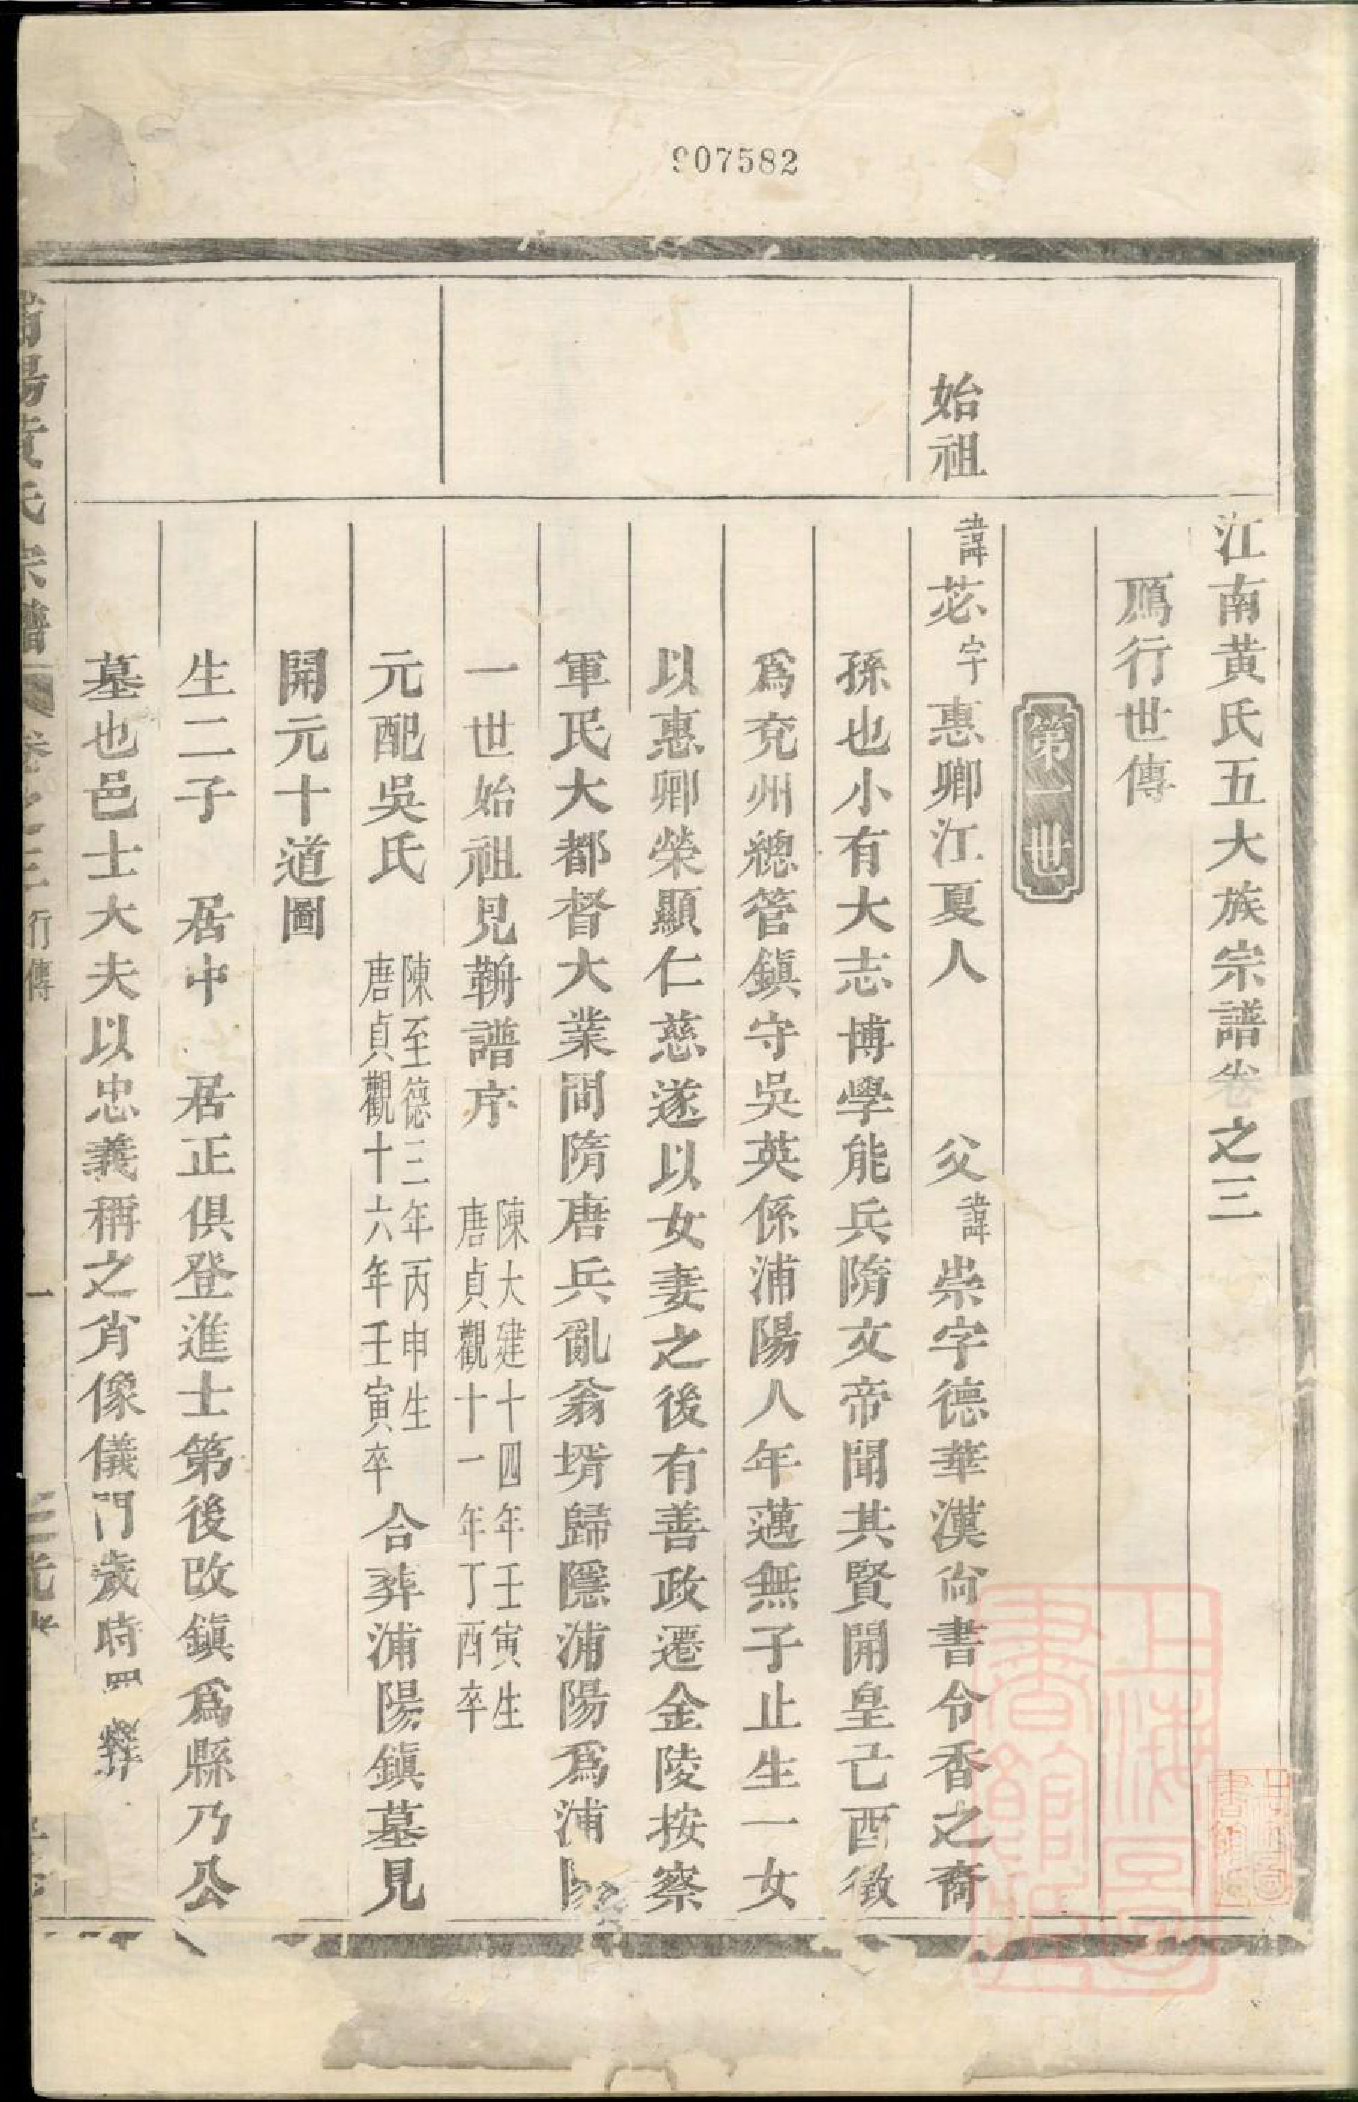 907582
江南黃氏五大族宗譜卷之三
鴈行世傳
第一世
始祖
諱苾字惠卿江夏人 父諱崇字德華漢尙書令香之裔
孫也小有大志博學能兵隋文帝聞其賢開皇己酉徵
爲兗州總管鎮守吳英係浦陽人年邁無子止生一女
以惠卿榮顯仁慈遂以女妻之後有善政遷金陵按察
軍民大都督大業間隋唐兵亂翁壻歸隱浦陽爲浦陽
一世始祖見新譜序 陳大建十四年壬寅生
唐貞觀十一年丁酉卒
元配吳氏 陳至德三年丙申生
唐貞觀十六年壬寅卒 合葬浦陽鎮墓見
開元十道圖
生二子 居中 居正俱登進士第後改鎮爲縣乃公
墓也邑士大夫以忠義稱之肖像儀門歲時
浦陽黃氏宗譜 卷之三 行傳 一
上海圖書館藏
上海圖書館藏